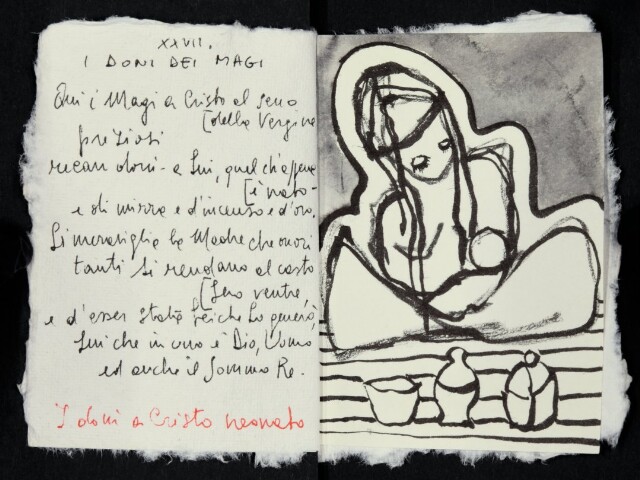 XXVII.
I DONI DEI MAGI
Qui i Magi a Cristo al seno
[della Vergine
preziosi
recan doni - a Lui, quel ch'appena
[è nato -
e di mirra e d'incenso e d'oro.
Si meraviglia la Madre che onori
tanti si rendano al casto
[Suo ventre,
e d'esser stata lei che Lo generò,
Lui che in uno è Dio, Uomo
ed anche il Sommo Re.
I doni a Cristo neonato